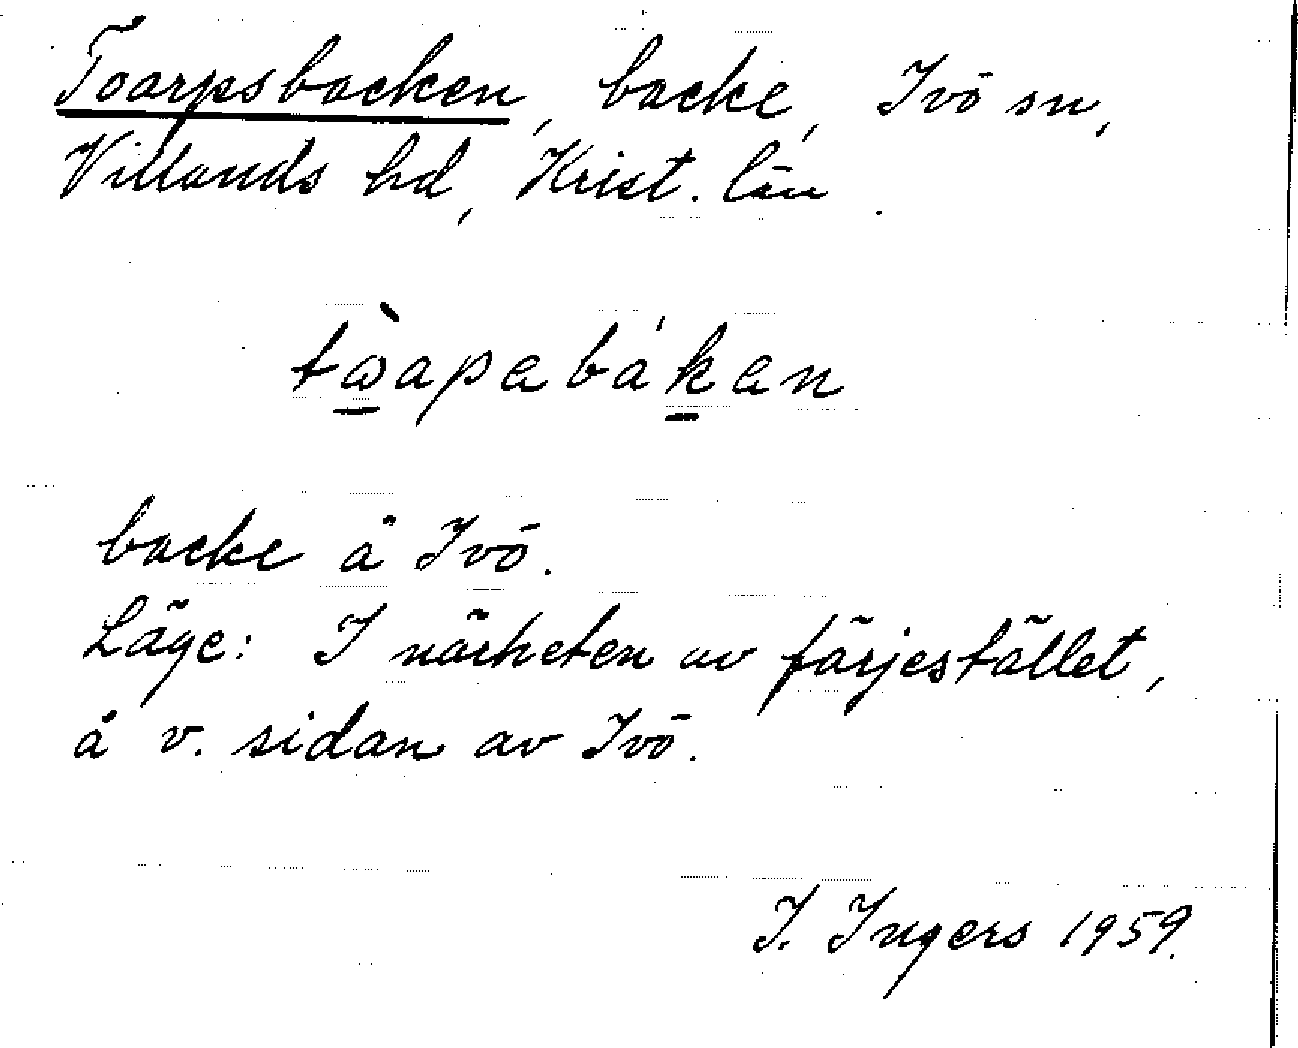 Toarpsbacken, backe, Ivö sn,
Villands hd, Krist. län.
tòapabákan
backe å Ivö.
Läge: I närheten av färjestället,
å v. sidan av Ivö.
I. Ingers 1959.